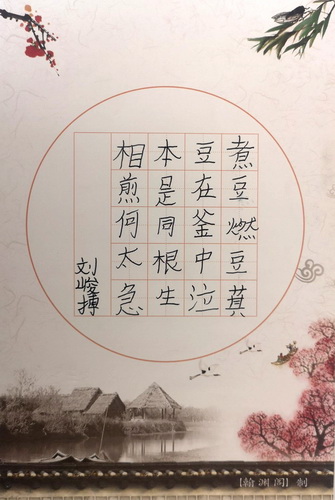 煮豆燃豆萁
豆在釜中泣
本是同根生
相煎何太急
刘峻搏
【翰渊阁】制